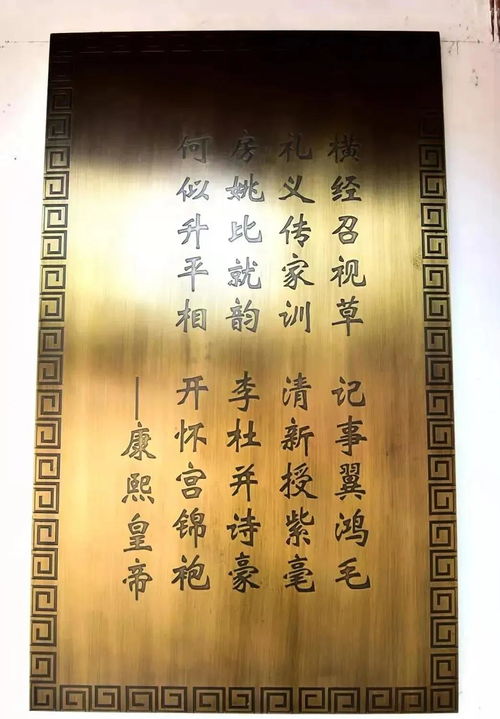 横经召视草 记事翼鸿毛
礼义传家训 清新授紫毫
房姚比就韵 李杜并诗豪
何似升平相 开怀宫锦袍
—康熙皇帝